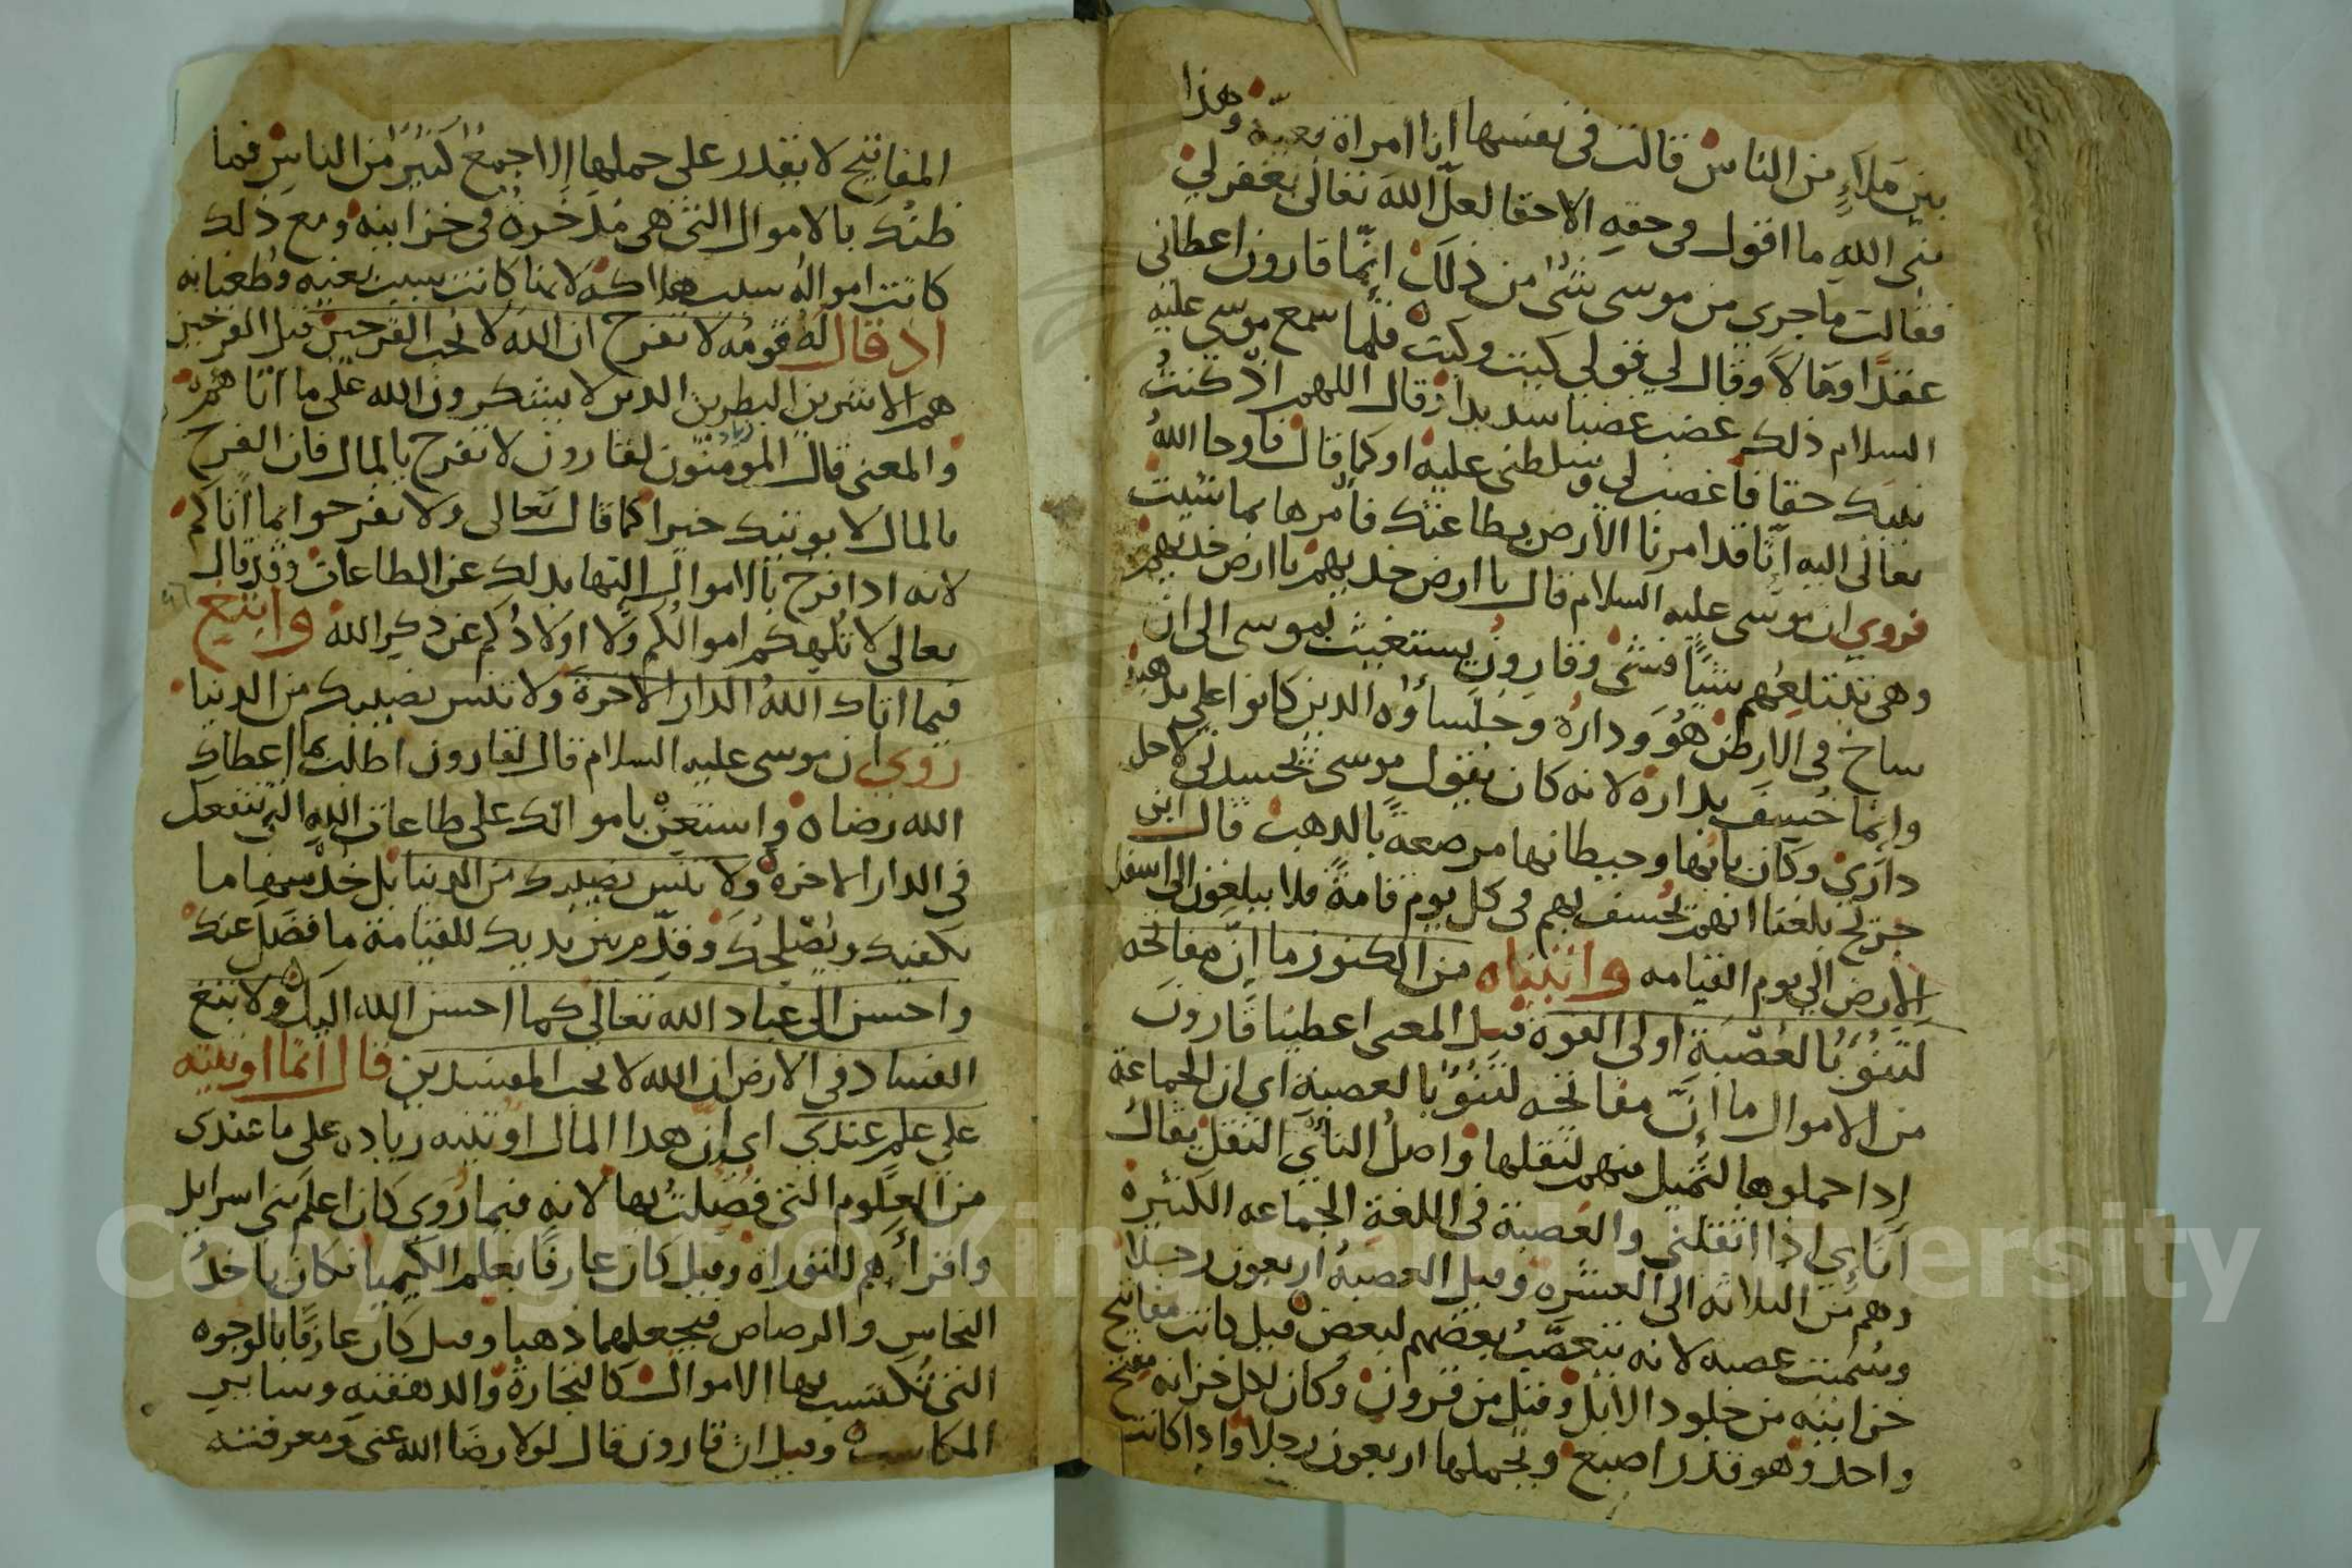 بين ملاءٍ من الناس قالت في نفسها انا امراة بغيّة وهذا
نبى اللهِ ما اقول في حقهِ الا حقا لعلّ اللهَ تعالى يغفر لي
فقالت ما جرى من موسى شئ من ذلك انّما قارون اعطانى
عقدًا ومالاً وقال لي قولي كيت وكيت فلمّا سمع موسى عليه
السلام ذلك غضب غضبا شديدا وقال اللهم اذ كنتُ
نبيك حقا فاغضب لي وسلطنى عليه او كما قال فاوحا اللهُ
تعالى اليه انّا قد امرنا الارض بطاعتك فأمرها بما شيت
فروي ان موسى عليه السلام قال يا ارض خديهم يا ارض خديهم
وهى تبتلعُهم شيًا فشئ وقارون يستغيث بموسى الى ان
ساخ في الارض هُوَ ودارهُ وجلساؤه الدين كانوا على مذهبه
وانما خُسِفَ بداره لانه كان يقول موسى يحسدنى لاجل
داري وكان بابُها وحيطانها مرصعةً بالدهب قال ابن
جريج بلغنا انهم يُخسف بهم في كل يوم قامةً فلا يبلغون الى اسفل
الارض الي يوم القيامه واتيناه من الكنوز ما انّ مفاتحه
لتنُوءُ بُالعُصْبَةِ اولى القوة قيل المعنى اعطينا قارونَ
من الاموال ما انّ مفاتحَه لتنُوءُ بالعصبة اي ان الجماعة
إذا حملوها لتُميل منهم لثقلها واصلُ النأي الثقل يقالُ
اَنَاءي اذا اثقلنى والعُصبة في اللغةِ الجماعه الكثيرة
وهم من الثلاثه الى العشره وقيل العصبهُ اربعون رجلاً
وسُميت عصبه لانه يتعصّبُ بعضهم لبعض قيل كانت مفاتيح
خزاينه من جلود الابل وقيل من قرون وكان لكل خزانه مفتح
واحد وهو قدر اصبع ويحملها اربعون رجلا واذا كانت
المفاتيح لا يقدر على حملها إلا جمعٌ كثيرٌ من الناس فما
ظنك بالاموال التى هى مُدَّخرةٌ في خزاينه ومع ذلك
كانت اموالهُ سبب هلاكه لانها كانت سبب بغيه وطغيانه
اذ قال لهُ قومُه لا تفرح ان اللهَ لا يُحب الفرحين قيل الفرحين
هم الاشرين البطرين الدين لا يشكرون الله على ما اتاهم
والمعنى قال المؤمنون لقارون لا تفرح بالمال فان الفرح
بالمال لا يوتيك خيرا كما قال تعالى ولا تفرحوا بما اتاكم
لانه اذا فرح بالاموال التها بذلك عن الطاعات وقد قال
تعالى لا تُلهِكم اموالُكم ولا اولادُكم عن ذكر الله وابتغ
فيما اتاك اللهُ الدار الاخرة ولا تنس نصيبك من الدنيا
روي ان موسى عليه السلام قال لقارون اطلب بما اعطاك
الله رضاه واستعن باموالك على طاعات اللهِ التي تنفعك
في الدار الاخره ولا تنس نصيبك من الدنيا بل خُذ منها ما
يكفيك ويُصْلِحُكَ وقدّم بين يديك للقيامة ما فضلَ عنك
واحسن الى عباد الله تعالى كما احسن الله اليك ولا تبغ
الفساد في الارض ان الله لا يحب المفسدين قال انّما اوتيته
على علم عندي اى ان هدا المال اوتيته زياده على ما عندى
من العلوم التى فُضلتُ بها لانه فيما رُوى كان اعلَم بنى اسرايل
واقراءهم للتوراه وقيل كان عارفًا بعلم الكيميا فكان ياخدُ
النحاس والرصاص فيجعلهما ذهبا وقيل كان عارفًا بالوجوه
التى تُكتسب بها الاموال كالتجارة والدهقنه وساير
المكاسب وقيل ان قارون قال لولا رضَا الله عنى ومعرفته